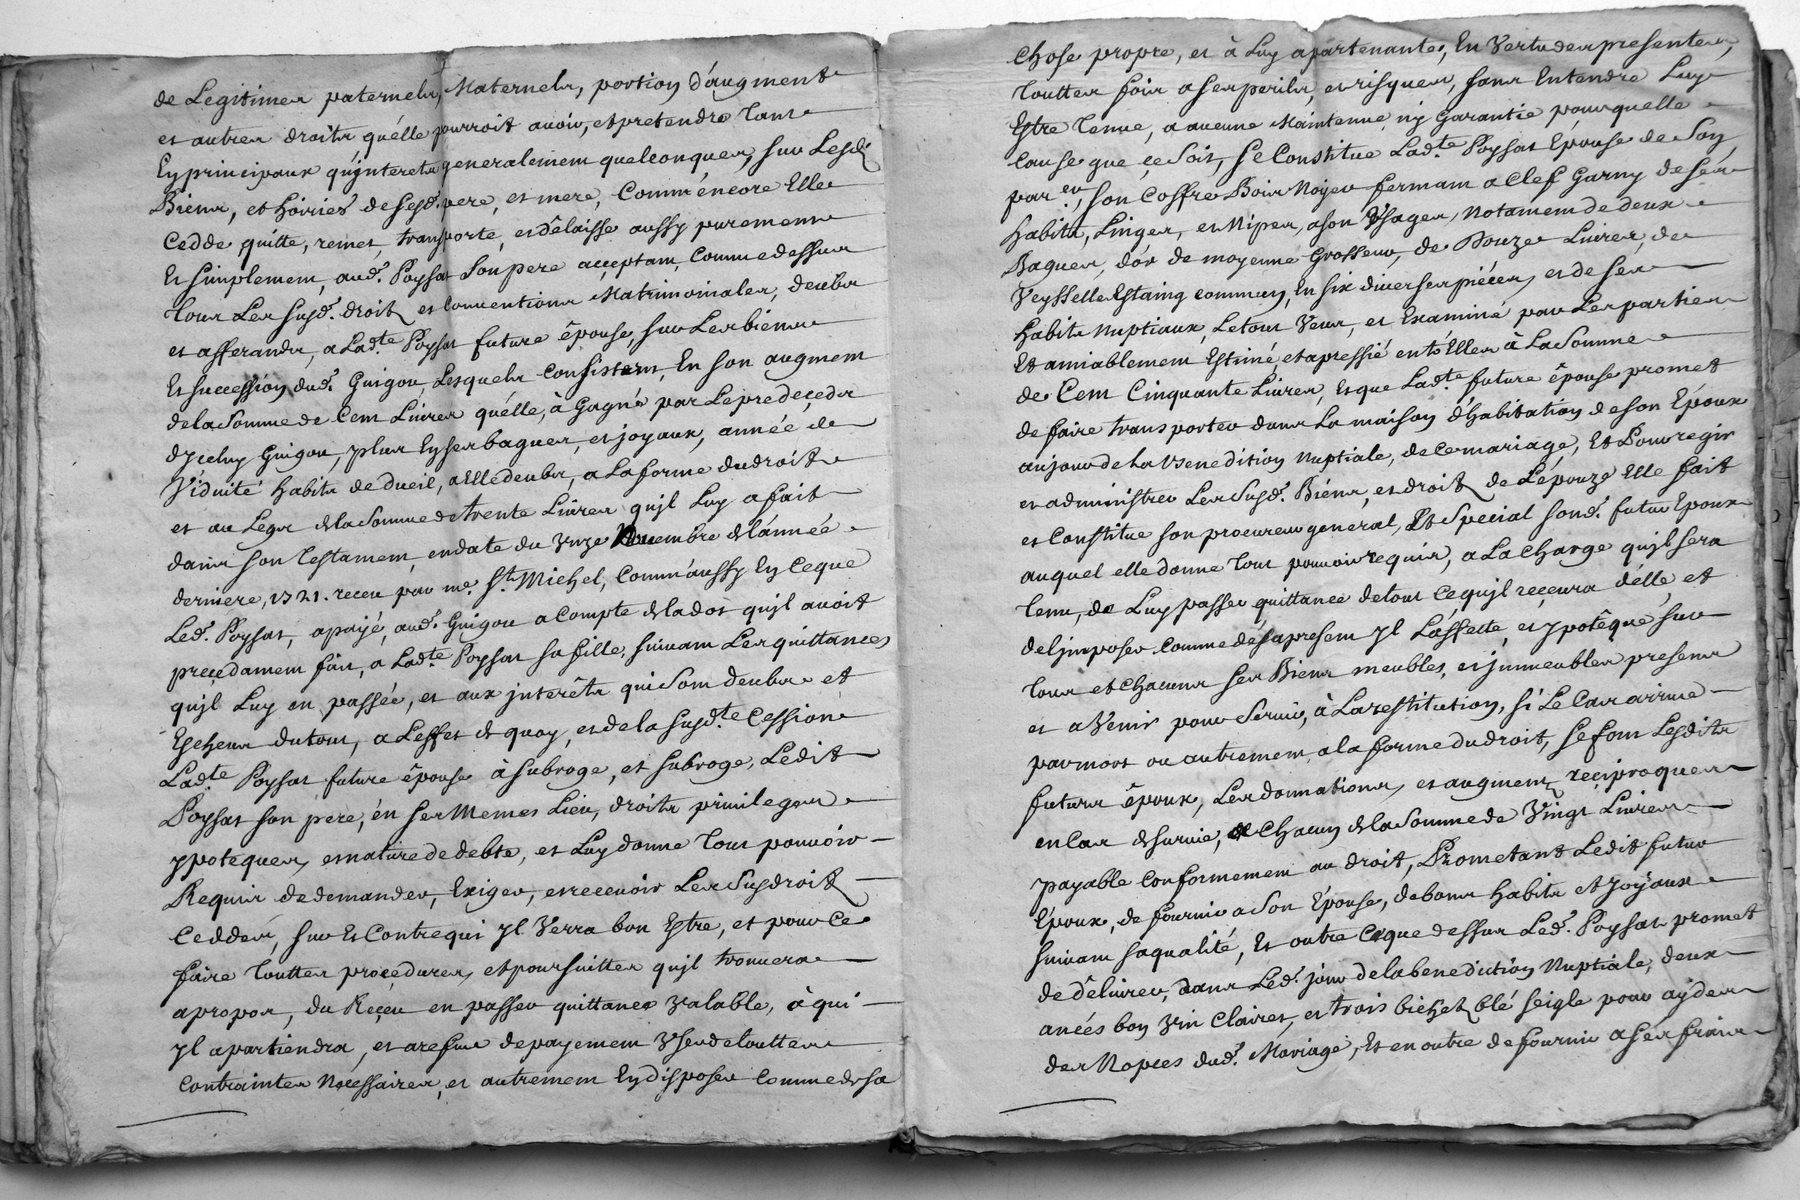 de Legitimes paternels, Maternels, portion d'augment
et autres droits, qu'elle pourroit avoir, et pretendre tant
En principaux qu'jnterets generalement quelconques, sur Lesd.
Biens, et hoiries de sesd. pere, et mere, Comm'encore Elle
Cedde, quitte, remet, transporte, et délaisse aussy purement
Et simplement, aud. Poysat Son pere acceptant, Comme dessus
tous Les susd. droits et Conventions Matrimoniales, deubs
et afferands, a Lad.te Poysat future épouse, sur Les biens
Et succession dud. Guigou, Lesquels Consistent, En son augment
de la Somme de Cent Livres qu'elle, à Gagné par Le predeceds
d'Jceluy Guigou, plus En ses bagues, et joyaux, année de
Viduité habits de dueil, a Elle deubs, a La forme du droit
et au Legs de la Somme de trente Livres qu'jl Luy a fait
dans son Testament, en date du Vnze Novembre de l'année
derniere, 1721. receu par me. St. Michel, Comm'aussy En Ce que
Led. Poysat, a payé, aud. Guigou a Compte de la dot qu'jl avoit
precedament fait, a Lad.te Poysat sa fille, suivant Les quittances
qu'jl Luy en passée, et aux jnterêts qui Sont deubs et
Escheus du tout, a L'effet de quoy, et de la susd.te Cession
Lad.te Poysat future épouse à subroge, et subroge, Ledit
Poysat son pere, en ses Memes Lieu, droits privileges
ypoteques, et nature de debte, et Luy donne tout pouvoir
Requis de demander, Exiger, et recevoir Les Susdroits
Ceddés, sur Et Contre qui Jl Verra bon Estre, et pour Ce
faire touttes procedures, et poursuittes qu'jl trouvera
a propos, du Reçeu en passer quittance Valable, à qui
Jl apartiendra, et a refus de payement Vser de touttes
Contraintes Necessaires, et autrement En disposer Comme de sa
Chose propre, et à Luy apartenante, En Vertu des presentes,
touttes fois a ses perils, et risques, sans Entendre Luy
Estre tenue, a aucune Maintenue ny Garantie pour quelle
Cause que ce Soit, se Constitue Lad.te Poysat Epouse de Son
par er, son Coffre Bois Noyer fermant a Clef Garny de ses
habits, Linges, et Nipes, a son Vsage, Notament de deux
Bagues, d'or de moyenne Grosseur, de Douze Livres, de
Veysselle Estaing commun, En six diverses piéces, et de ses
habits Nuptiaux, Le tout Veux, et Examiné par Les parties
Et amiablement Estimé, et apressié entr'Elles à La Somme
de Cent Cinquante Livres, Et que Lad.te future épouse promet
de faire transporter dans La maison d'habitation de son Époux
au jour de La Benedition Nuptiale, de ce mariage, Et Pour regir
et administrer Les Susd. Biéns, et droits de L'épouze Elle fait
et Constitue son procureur general, Et Special Sond. futur Epoux
auquel elle donne tout pouvoir requis, a La Charge qu'jl sera
tenu, de Luy passer quittance de tout Ce qu'jl recevra d'elle, et
de l'imposer Comme dés a present Jl L'assette, et ypotêque sur
tous et Chacuns ses Biens meubles, et jmmeubles presens
et a Venir pour Servir, à La restitution, si Le Cas arrive
par mort ou autrement, a la forme du droit, se font Lesdits
futurs époux, Les donnations, et augment reciproques
en Cas de survie, de Chacun de la Somme de Vingt Livres
payable Conformement au droit, Prometant Ledit futur
Époux, de fournir a Son Épouse, de bons habits et Joÿaux
suivant sa qualité, Et outre Ce que dessus Led. Poysat promet
de délivrer, dans Led. jour de la benediction Nuptiale, deux
anées bon Vin Clairet, et trois bichets blé seigle pour ayder
des Nopces dud. Mariage, Et en outre de fournir a ses frais